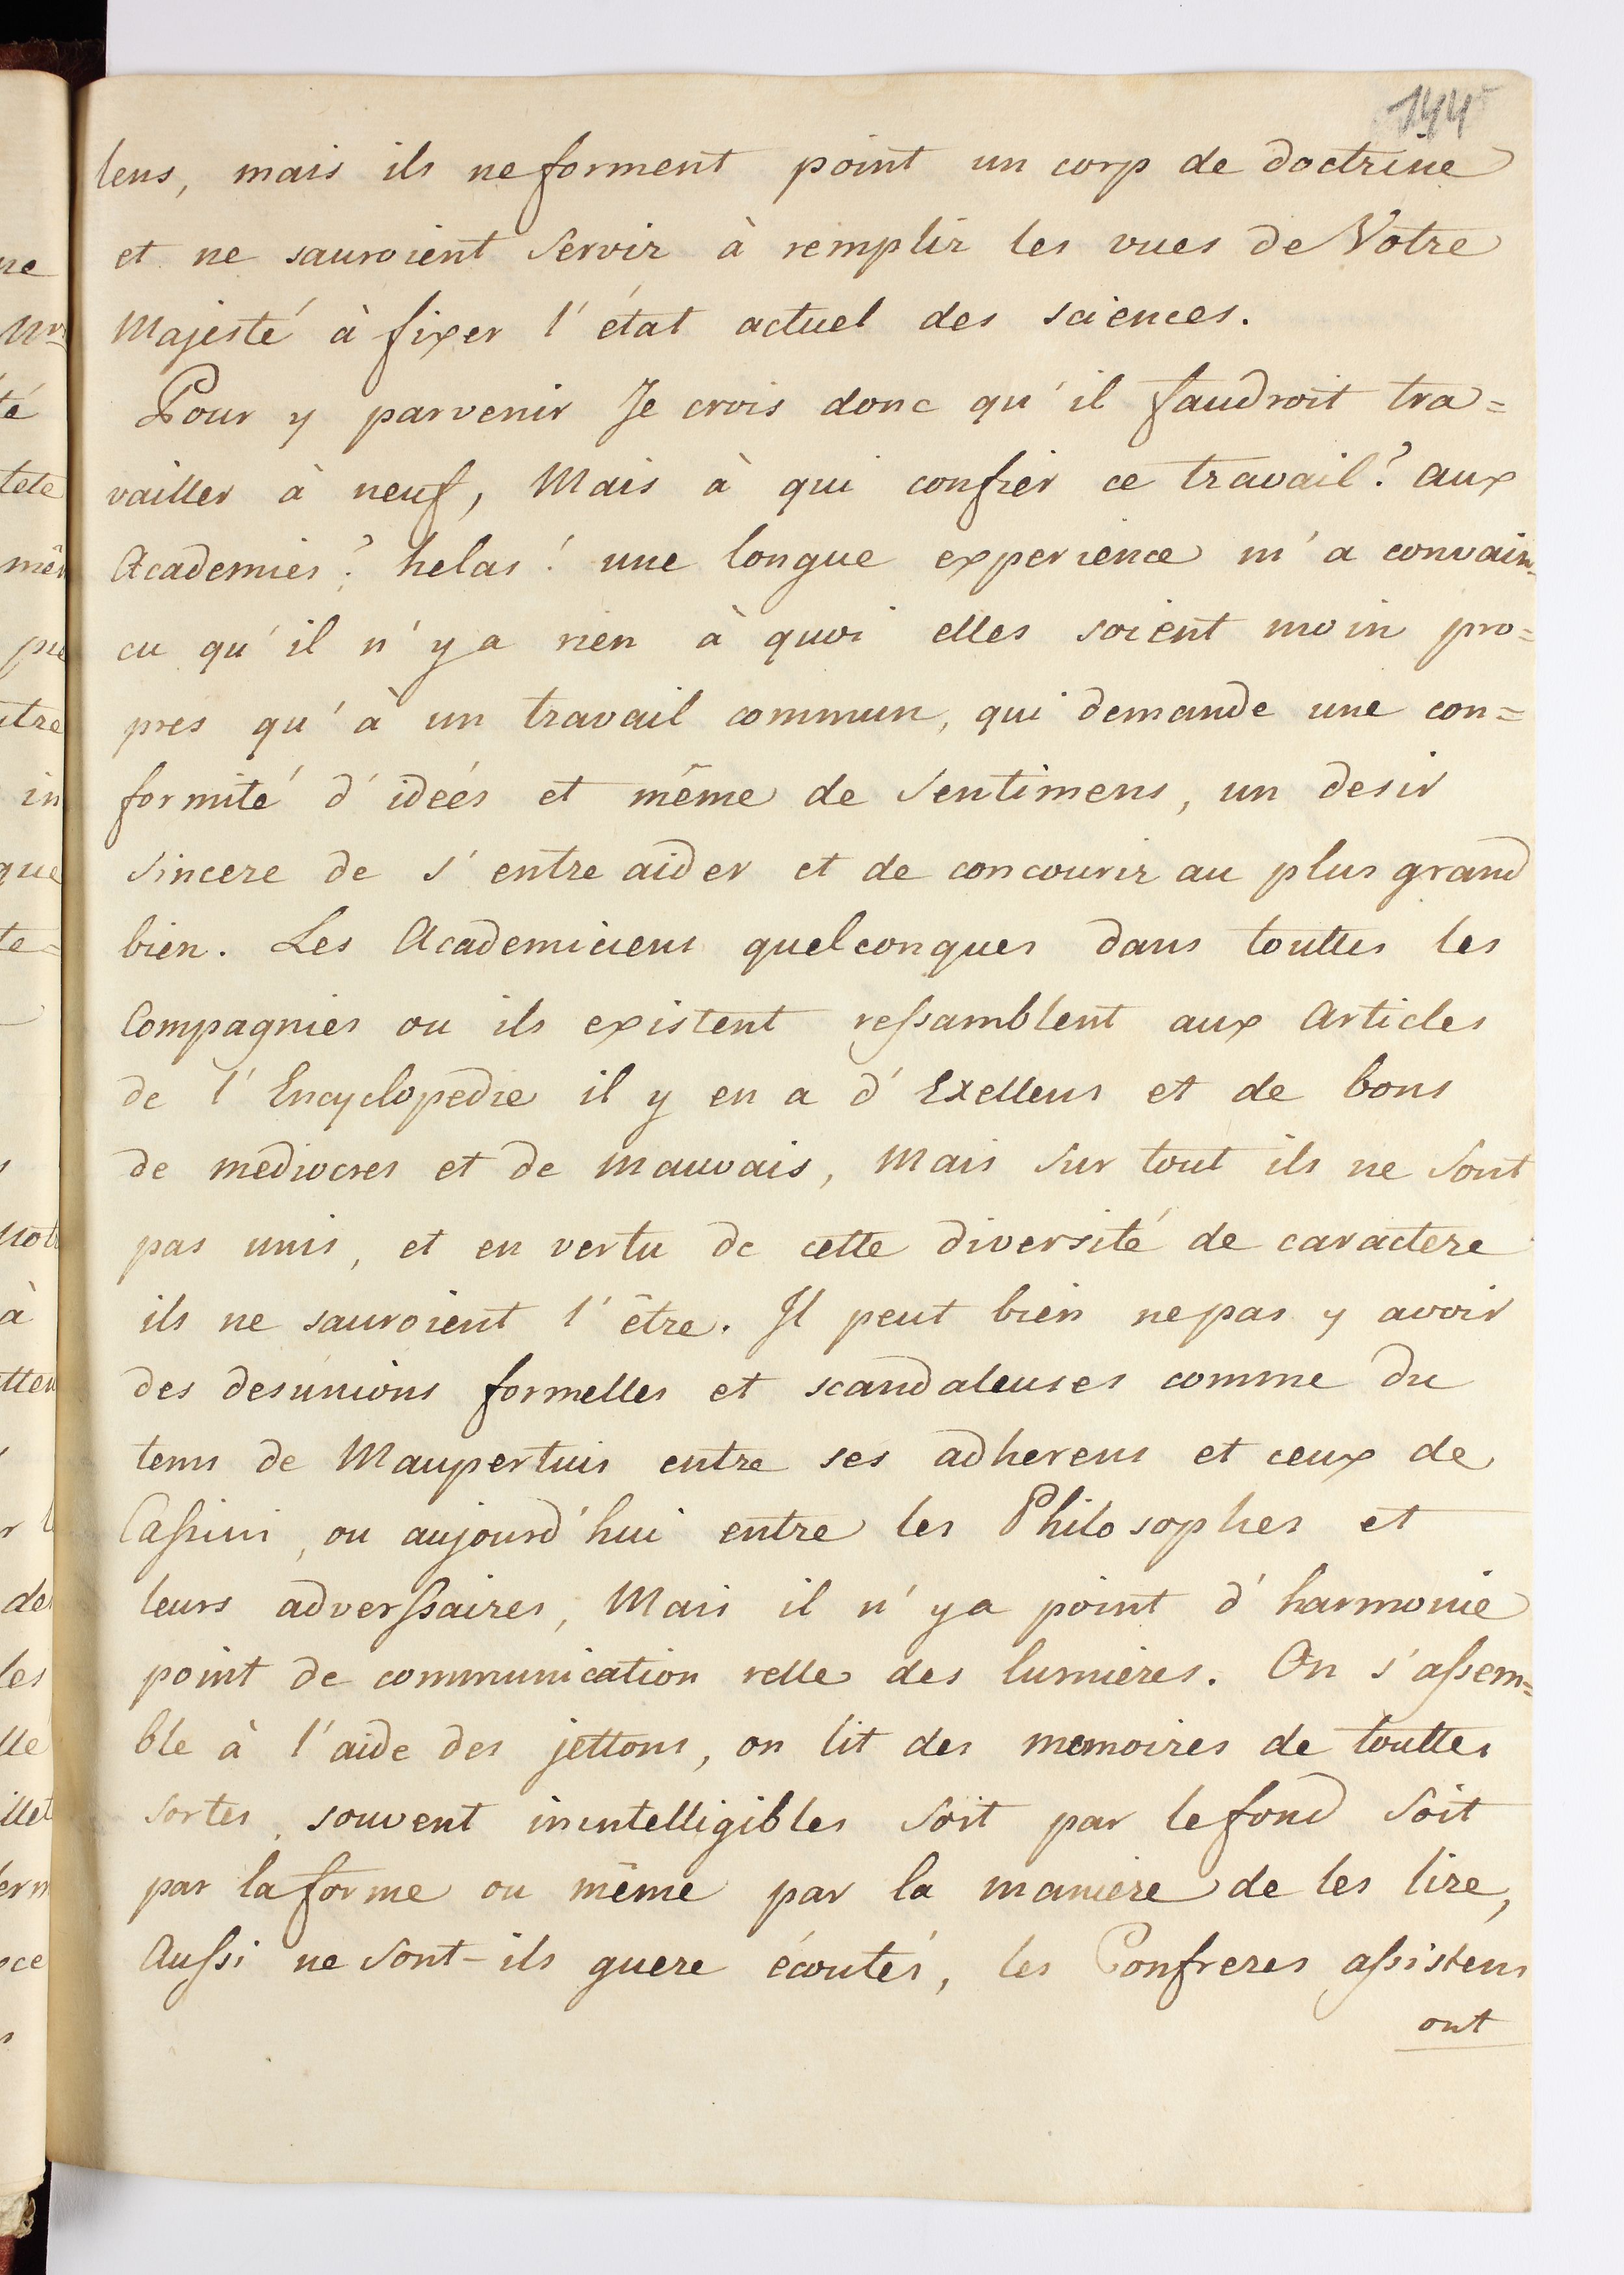 144
lens, mais ils ne forment point un corp de doctrine
et ne sauroient servir à remplir les vues de Votre
Majesté à fixer l'état actuel des sciences.
Pour y parvenir Je crois donc qu'il faudroit tra=
vailler à neuf, Mais à qui confier ce travail? aux
Academies? helas! une longue experience m'a convain=
cu qu'il n'y a rien à quoi elles soient moin pro=
pres qu'à un travail commun, qui demande une con=
formité d'idées et même de sentimens, un desir
sincere de s'entre aider et de concourir au plus grand
bien. Les Academiciens quelconques dans touttes les
Compagnies ou ils existent ressamblent aux Articles
de l'Encyclopedie il y en a d'Exellens et de bons
de mediocres et de mauvais, Mais sur tout ils ne sont
pas unis, et en vertu de cette diversité de caractere
ils ne sauroient l'être. Il peut bien ne pas y avoir
des desunions formelles et scandaleuses comme du
tems de Maupertuis entre ses adherens et ceux de
Cassini, ou aujourd'hui entre les Philosophes et
leurs adverssaires, Mais il n'y a point d'harmonie
point de communication relle des lumieres. On s'assem=
ble à l'aide des jettons, on lit des memoires de touttes
sortes, souvent inintelligibles soit par le fond soit
par la forme ou même par la maniere de les lire,
Aussi ne sont-ils guere écoutés, les Confreres assistens
ont
ne
té
tete
pu
utre
in
que
te=
à
tten
de
les
lle
illet